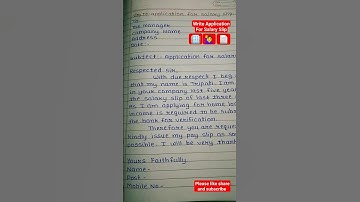 Application for salary slip
The Manager
Company Name
Address
Date -
Subject - Application for salar
Respected Sir,
With due respect I beg
that my name is Tripati. I am
in your company last five year
the salary slip of last three
As I am applying for home loa
income is required to be sub
the bank for verification.
Therefore you are reque
kindly issue my pay slip as so
possible. I will be very thank
Yours Faithfully
Name -
Post -
Mobile No -
Write Application
For Salary Slip
Please like share
and subscribe